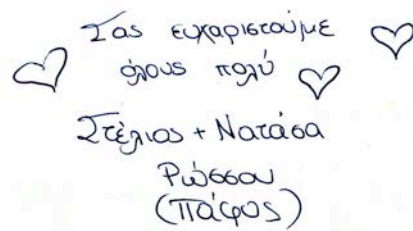 Σας ευχαριστούμε
όλους πολύ
Στέλιος + Νατάσα
Ρώσσου
(Πάφος)